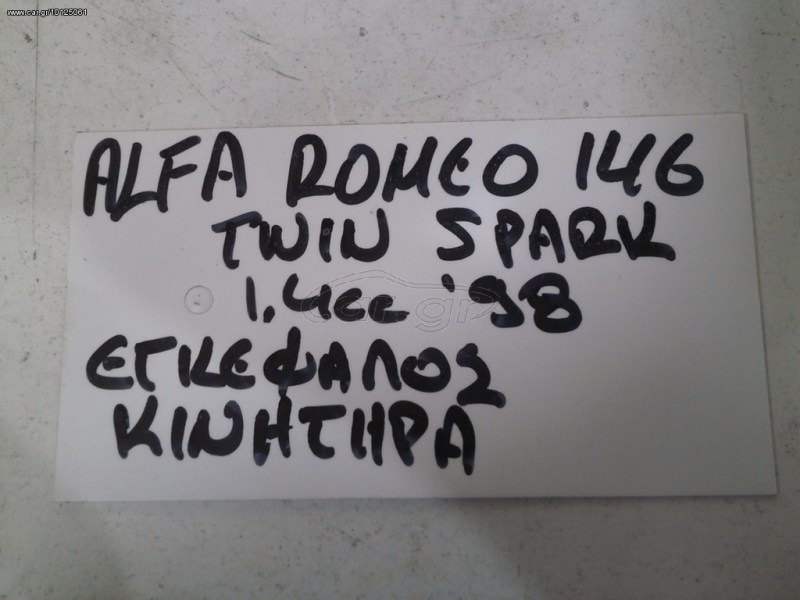 www.car.gr/10125061
ALFA ROMEO 146
TWIN SPARK
1.4cc '98
car gr
ΕΓΚΕΦΑΛΟΣ
ΚΙΝΗΤΗΡΑ